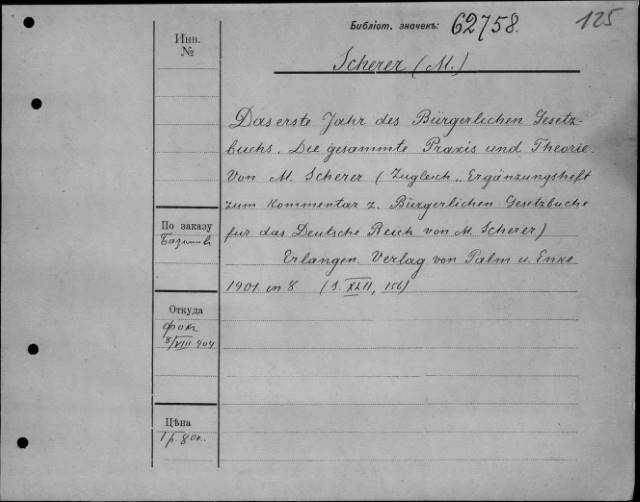 Библіот. значекъ: 62758.
125
Инв.
№
Scherer (M.)
Das erste Jahr des Bürgerlichen Gesetz-
buchs. Die gesammte Praxis und Theorie.
Von M. Scherer (Zugleich „Ergänzungsheft
zum Kommentar z. Bürgerlichen Gesetzbuche
fur das Deutsche Reich von M. Scherer)
Erlangen. Verlag von Palm u. Enke
1901 in 8 (S. XLII, 156)
По заказу
Откуда
фокъ
8/VIII 904
Цѣна
1 р. 80 к.